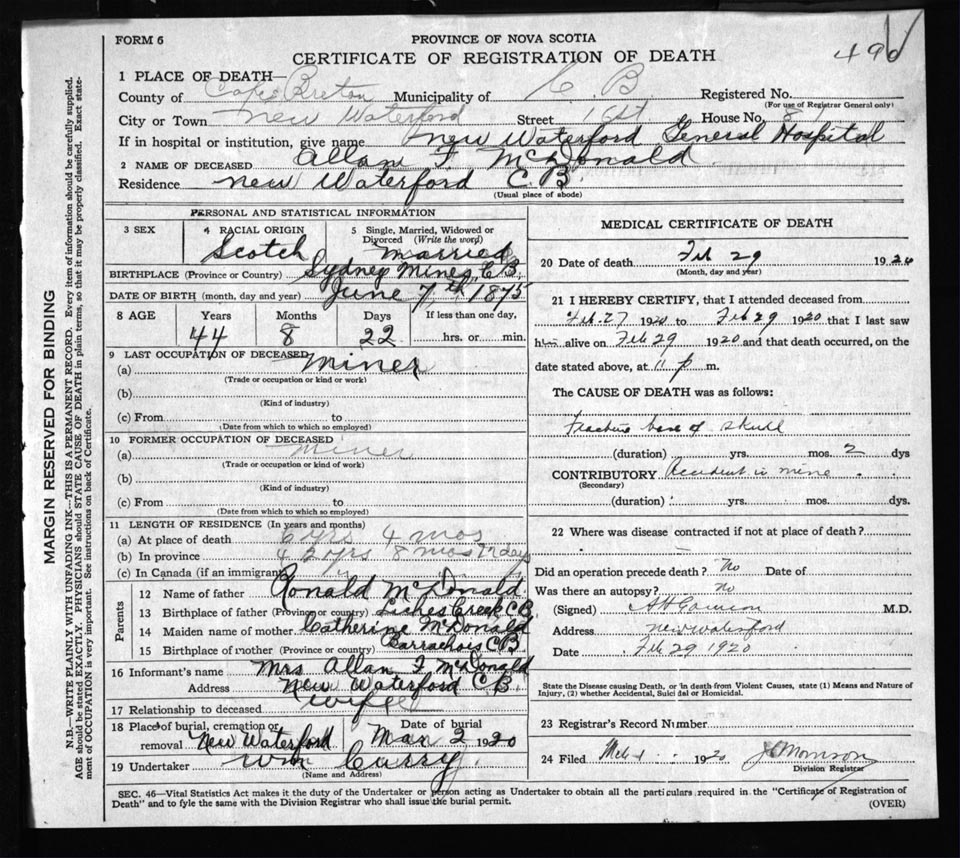 FORM 6
PROVINCE OF NOVA SCOTIA
CERTIFICATE OF REGISTRATION OF DEATH
490
1 PLACE OF DEATH—
County of Cape Breton Municipality of C. B. Registered No.
(For use of Registrar General only)
City or Town New Waterford Street 1 st House No. 81
If in hospital or institution, give name New Waterford General Hospital
2 NAME OF DECEASED Allan F. McDonald
Residence New Waterford C.B.
(Usual place of abode)
PERSONAL AND STATISTICAL INFORMATION
3 SEX 4 RACIAL ORIGIN Scotch 5 Single, Married, Widowed or Divorced (Write the word) Married
BIRTHPLACE (Province or Country) Sydney Mines, C.B.
DATE OF BIRTH (month, day and year) June 7th 1875
8 AGE Years Months Days If less than one day,
44 8 22 hrs. or min.
9 LAST OCCUPATION OF DECEASED
(a) Miner
(Trade or occupation or kind or work)
(b)
(Kind of industry)
(c) From to
(Date from which to which so employed)
10 FORMER OCCUPATION OF DECEASED
(a) Miner
(Trade or occupation or kind of work)
(b)
(Kind of industry)
(c) From to
(Date from which to which so employed)
11 LENGTH OF RESIDENCE (In years and months)
(a) At place of death 6 yrs 4 mos
(b) In province 42 yrs 8 mos days
(c) In Canada (if an immigrant)
Parents
12 Name of father Ronald McDonald
13 Birthplace of father (Province or country) Liches Creek C.B.
14 Maiden name of mother Catherine McDonald
15 Birthplace of mother (Province or country) Barrachois C.B.
16 Informant's name Mrs Allan F. McDonald
Address New Waterford C.B.
17 Relationship to deceased Wife
18 Place of burial, cremation or removal New Waterford Date of burial Mar 2 1920
19 Undertaker Wm Curry
(Name and Address)
MEDICAL CERTIFICATE OF DEATH
20 Date of death Feb 29 1920
(Month, day and year)
21 I HEREBY CERTIFY, that I attended deceased from
Feb. 27 1920 to Feb 29 1920 that I last saw
him alive on Feb 29 1920 and that death occurred, on the
date stated above, at 11 p m.
The CAUSE OF DEATH was as follows:
Fracture base of skull
(duration) yrs. mos. 2 dys
CONTRIBUTORY Accident in mine
(Secondary)
(duration) yrs. mos. dys.
22 Where was disease contracted if not at place of death?
Did an operation precede death? No Date of
Was there an autopsy? no
(Signed) M.D.
Address New Waterford
Date Feb 29 1920
State the Disease causing Death, or in death from Violent Causes, state (1) Means and Nature of
Injury, (2) whether Accidental, Suicidal or Homicidal.
23 Registrar's Record Number
24 Filed Mch 1 1920 Morrison
Division Registrar
SEC. 46—Vital Statistics Act makes it the duty of the Undertaker or person acting as Undertaker to obtain all the particulars required in the "Certificate of Registration of
Death" and to fyle the same with the Division Registrar who shall issue the burial permit.
(OVER)
MARGIN RESERVED FOR BINDING
N.B.—WRITE PLAINLY WITH UNFADING INK—THIS IS A PERMANENT RECORD. Every item of information should be carefully supplied.
AGE should be stated EXACTLY. PHYSICIANS should STATE CAUSE OF DEATH in plain terms, so that it may be properly classified. Exact state-
ment of OCCUPATION is very important. See instructions on back of Certificate.